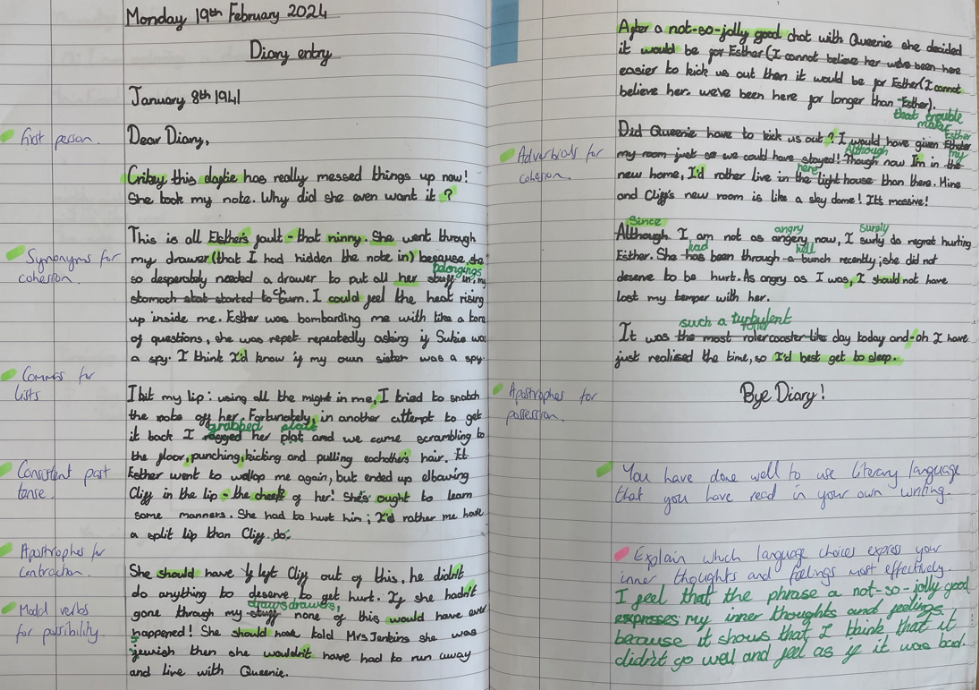 Monday 19th February 2024
Diary entry
January 8th 1941
First person.
Dear Diary,
Crikey this doytie has really messed things up now!
She took my note. Why did she even want it?
This is all Esther's fault - that ninny. She went through
Synonyms for
cohesion.
my drawer (that I had hidden the note in) because she
so desperately needed a drawer to put all her stuff in. my
belongings
stomach started to burn. I could feel the heat rising
up inside me. Esther was bombarding me with like a ton
of questions, she was repet repeatedly asking if Sukie was
a spy. I think I'd know if my own sister was a spy.
Commas for
lists
I bit my lip: using all the might in me, I tried to snatch
the note off her. Fortunately, in another attempt to get
grabbed
it back I her plat and we came scrambling to
the floor, punching, kicking and pulling eachother's hair.
Consistent past
tense.
Esther went to wallop me again, but ended up elbowing
Cliff in the lip - the cheek of her! She's ought to learn
some manners. She had to hurt him; I'd rather me have
a split lip than Cliff do.
Apostrophes for
contraction.
She should have left Cliff out of this, he didn't
do anything to deserve to get hurt. If she hadn't
drawers,
gone through my stuff none of this would have ever
Modal verbs
for possibility.
happened! She should have told Mrs Jenkins she was
jewish then she wouldn't have had to run away
and live with Queenie.
After a not-so-jolly good chat with Queenie she decided
it would be for Esther (I cannot believe her we've been here
easier to kick us out then it would be for Esther (I cannot
believe her. we've been here for longer than Esther).
that trouble
make
Did Queenie have to kick us out? I would have given Esther
Adverbials for
cohesion.
my room just so we could have stayed! Though now I'm in the
Although
my
here
new home, I'd rather live in the light house than there. Mine
and Cliff's new room is like a sky dome! It's massive!
Since
angry
Surely
Although I am not as angery now, I surly do regret hurting
had
hell
Esther. She has been through a bunch recently; she did not
deserve to be hurt. As angry as I was, I should not have
lost my temper with her.
such a turbulent
It was the most rolercoaster like day today and - oh I have
just realised the time, so I'd best get to sleep.
Apostrophes for
possession.
Bye Diary!
You have done well to use literary language
that you have read in your own writing.
Explain which language choices express your
inner thoughts and feelings most effectively.
I feel that the phrase a not-so-jolly good
expresses my inner thoughts and feelings
because it shows that I think that it
didn't go well and feel as if it was bad.